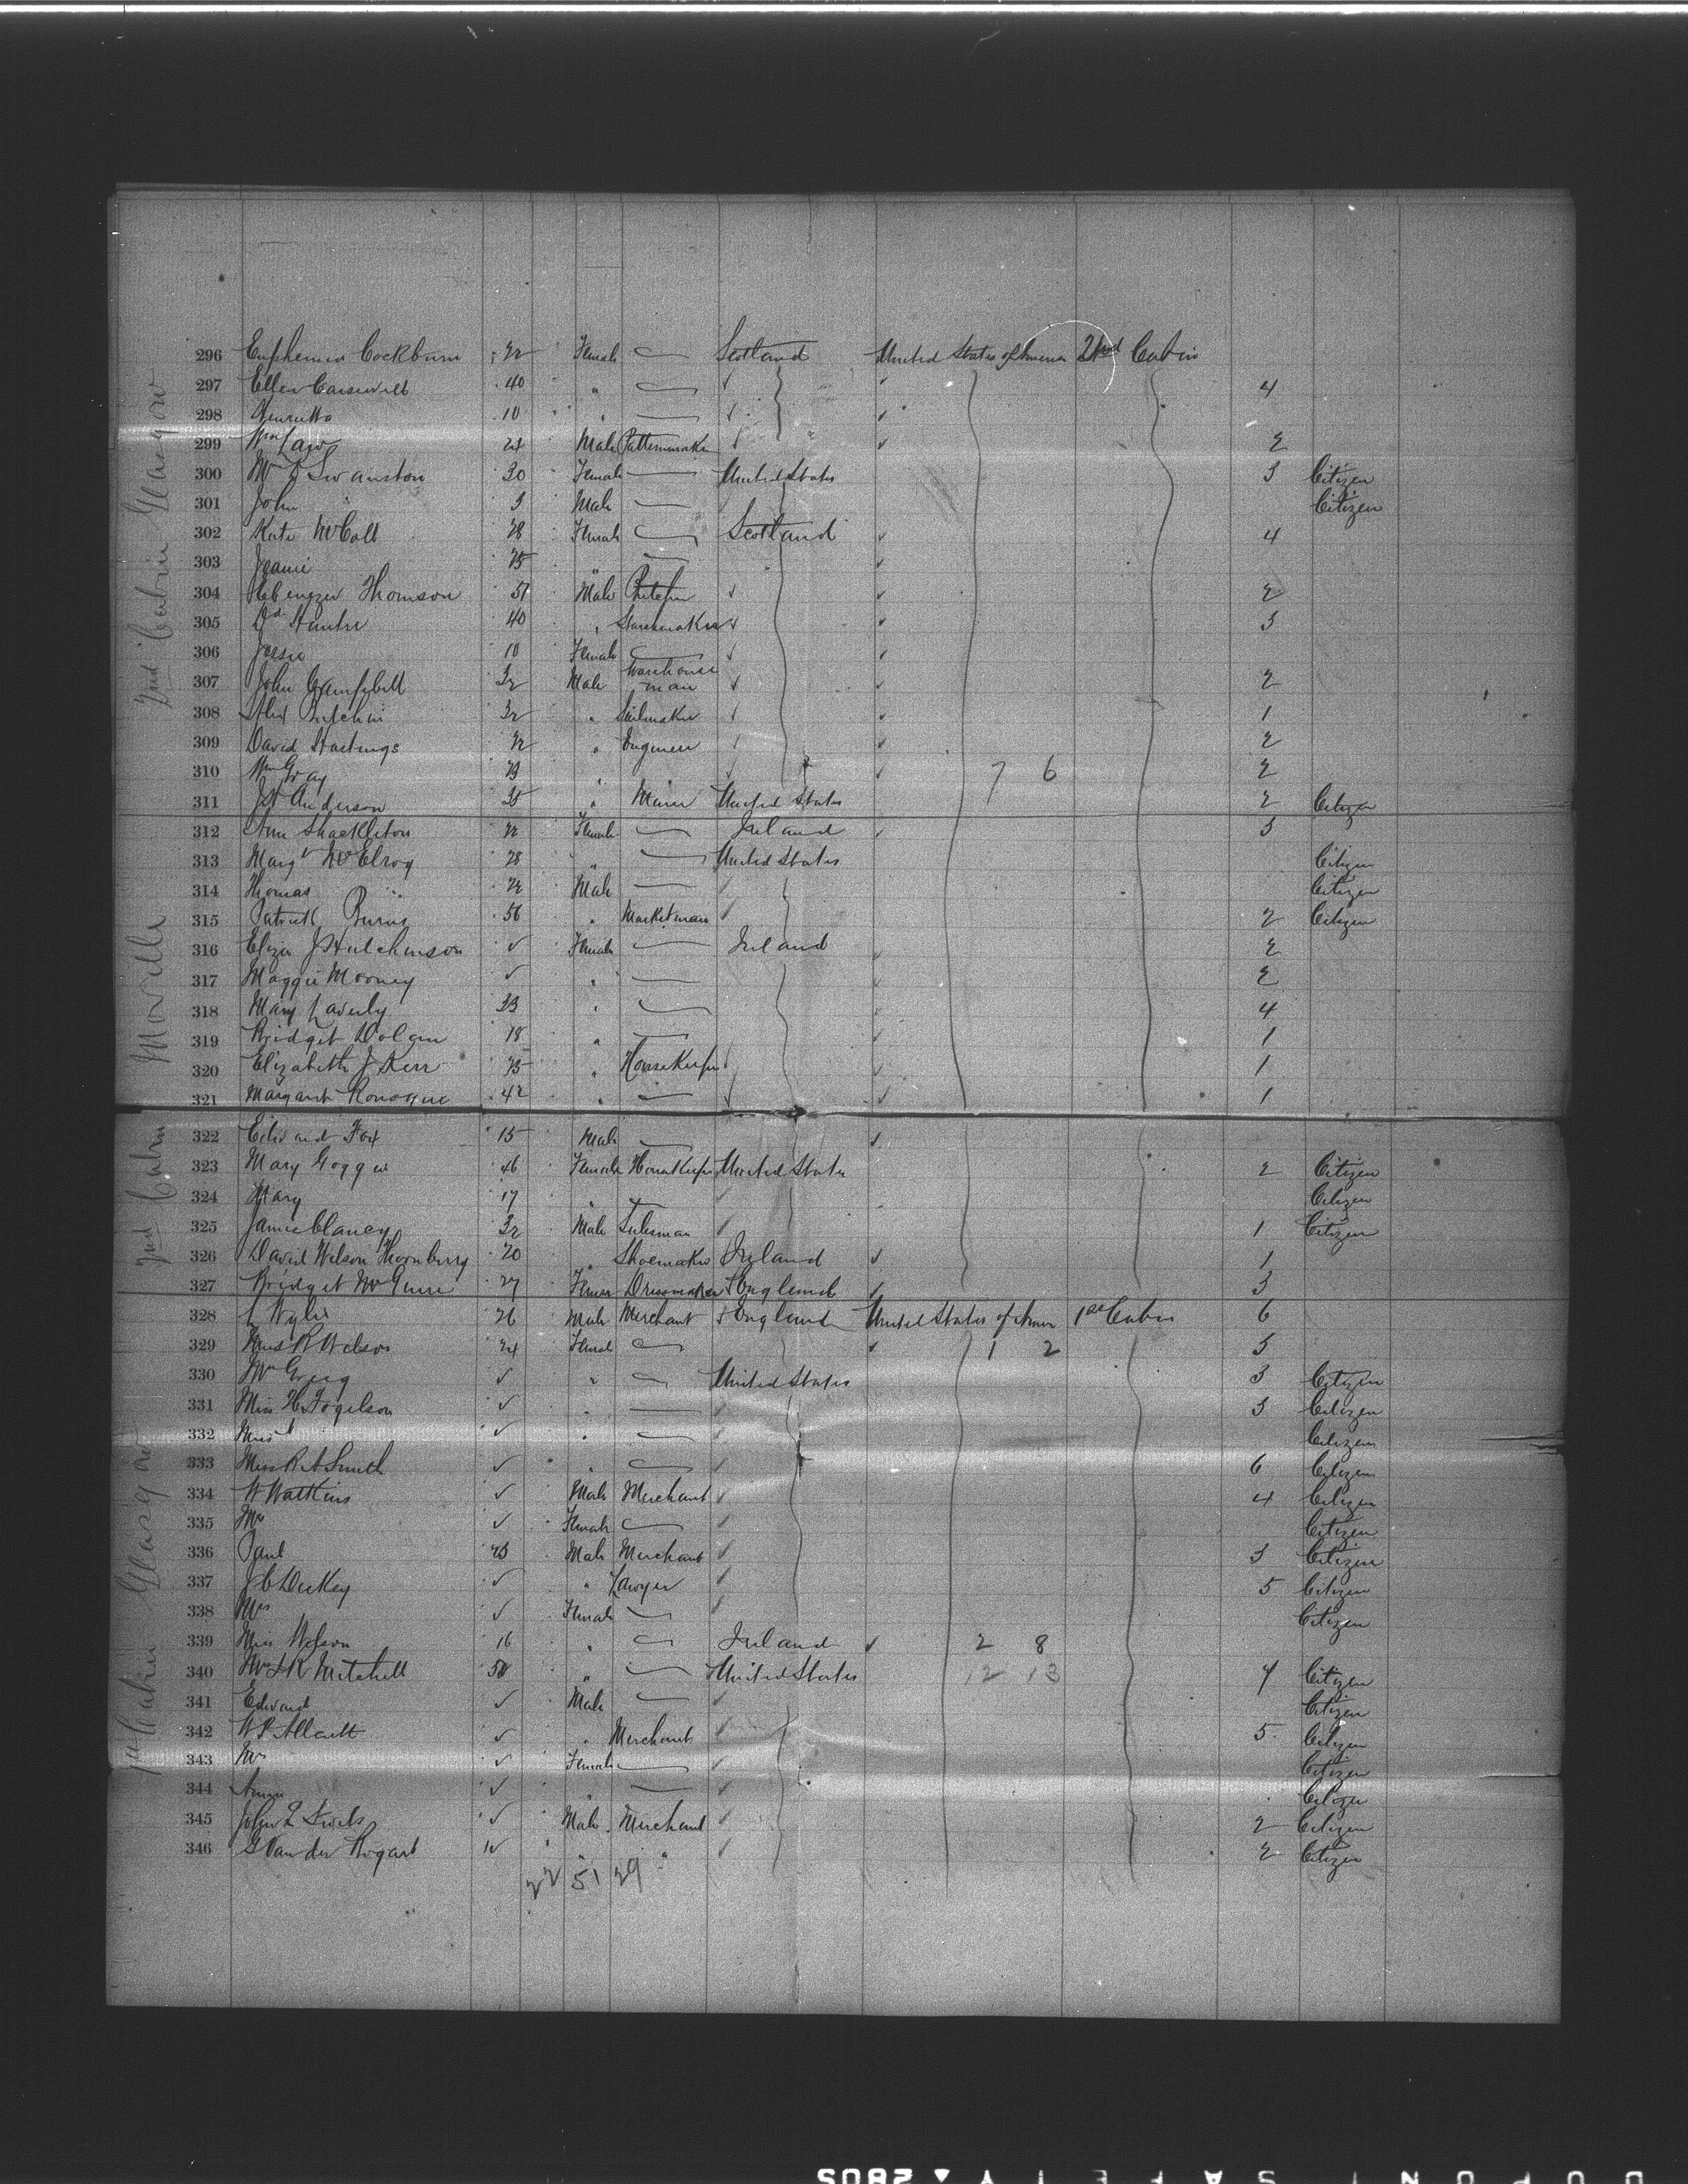 296 Euphemia Cockburn 22 Female Scotland United States of America 2nd Cabin
297 Ellen Carswell 40 " 4
298 Henrietta 10 "
299 Wm Law 24 Male Patternmaker 2
300 Swanston 30 Female United States 3 Citizen
301 John " 3 Male Citizen
302 Kate McColl 28 Female Scotland 4
303 Jeanie 25 "
304 Ebenezer Thomson 51 Male 2
305 Dd Hunter 40 " 3
306 Jessie 10 Female
307 John Campbell 32 Male Warehouse man 2
308 Alex 32 " Sailmaker 1
309 David Hastings 22 " Engineer 2
310 Wm Gray 23 " 7 6 2
311 Anderson 35 " Miner United States 2 Citizen
312 Ann Shackleton 22 Female Ireland 3
313 Margt McElroy 28 " United States Citizen
314 Thomas " Male Citizen
315 Patrick Burns 56 " Marketman 2 Citizen
316 Eliza J Hutchinson Female Ireland 2
317 Maggie Mooney " 2
318 Mary Laverly 33 " 4
319 Bridget Dolan 18 " 1
320 Elizabeth J Kerr 25 " Housekeeper 1
321 Margaret 42 " 1
322 Edward Fox 15 Male
323 Mary Goggin 46 Female Housekeeper United States 2 Citizen
324 Mary 17 " Citizen
325 James Clancy 32 Male Salesman 1 Citizen
326 David Wilson Thornberry 20 " Shoemaker Ireland 1
327 Bridget McGuire 27 Female Dressmaker England 3
328 Wylie 26 Male Merchant England United States of Amer 1st Cabin 6
329 R Wilson 24 Female 1 2 3
330 " United States 3 Citizen
331 Miss H Fogelson " 3 Citizen
332 Miss " " Citizen
333 Miss R A Smith " 6 Citizen
334 W Watkins Male Merchant 4 Citizen
335 Mrs Female Citizen
336 Paul 23 Male Merchant 3 Citizen
337 J C Dickey " Lawyer 5 Citizen
338 Mrs Female Citizen
339 Miss Wilson 16 " Ireland 2 8
340 Mitchell 50 " United States 12 13 4 Citizen
341 Edward Male Citizen
342 " Merchant 5 Citizen
343 Mrs Female Citizen
344 " Citizen
345 John Male Merchant 2 Citizen
346 G Van der Bogart " " 2 Citizen
22 51 29
2nd Cabin Glasgow
Moville
2nd Cabin
1st Cabin Glasgow
SAFETY 2805